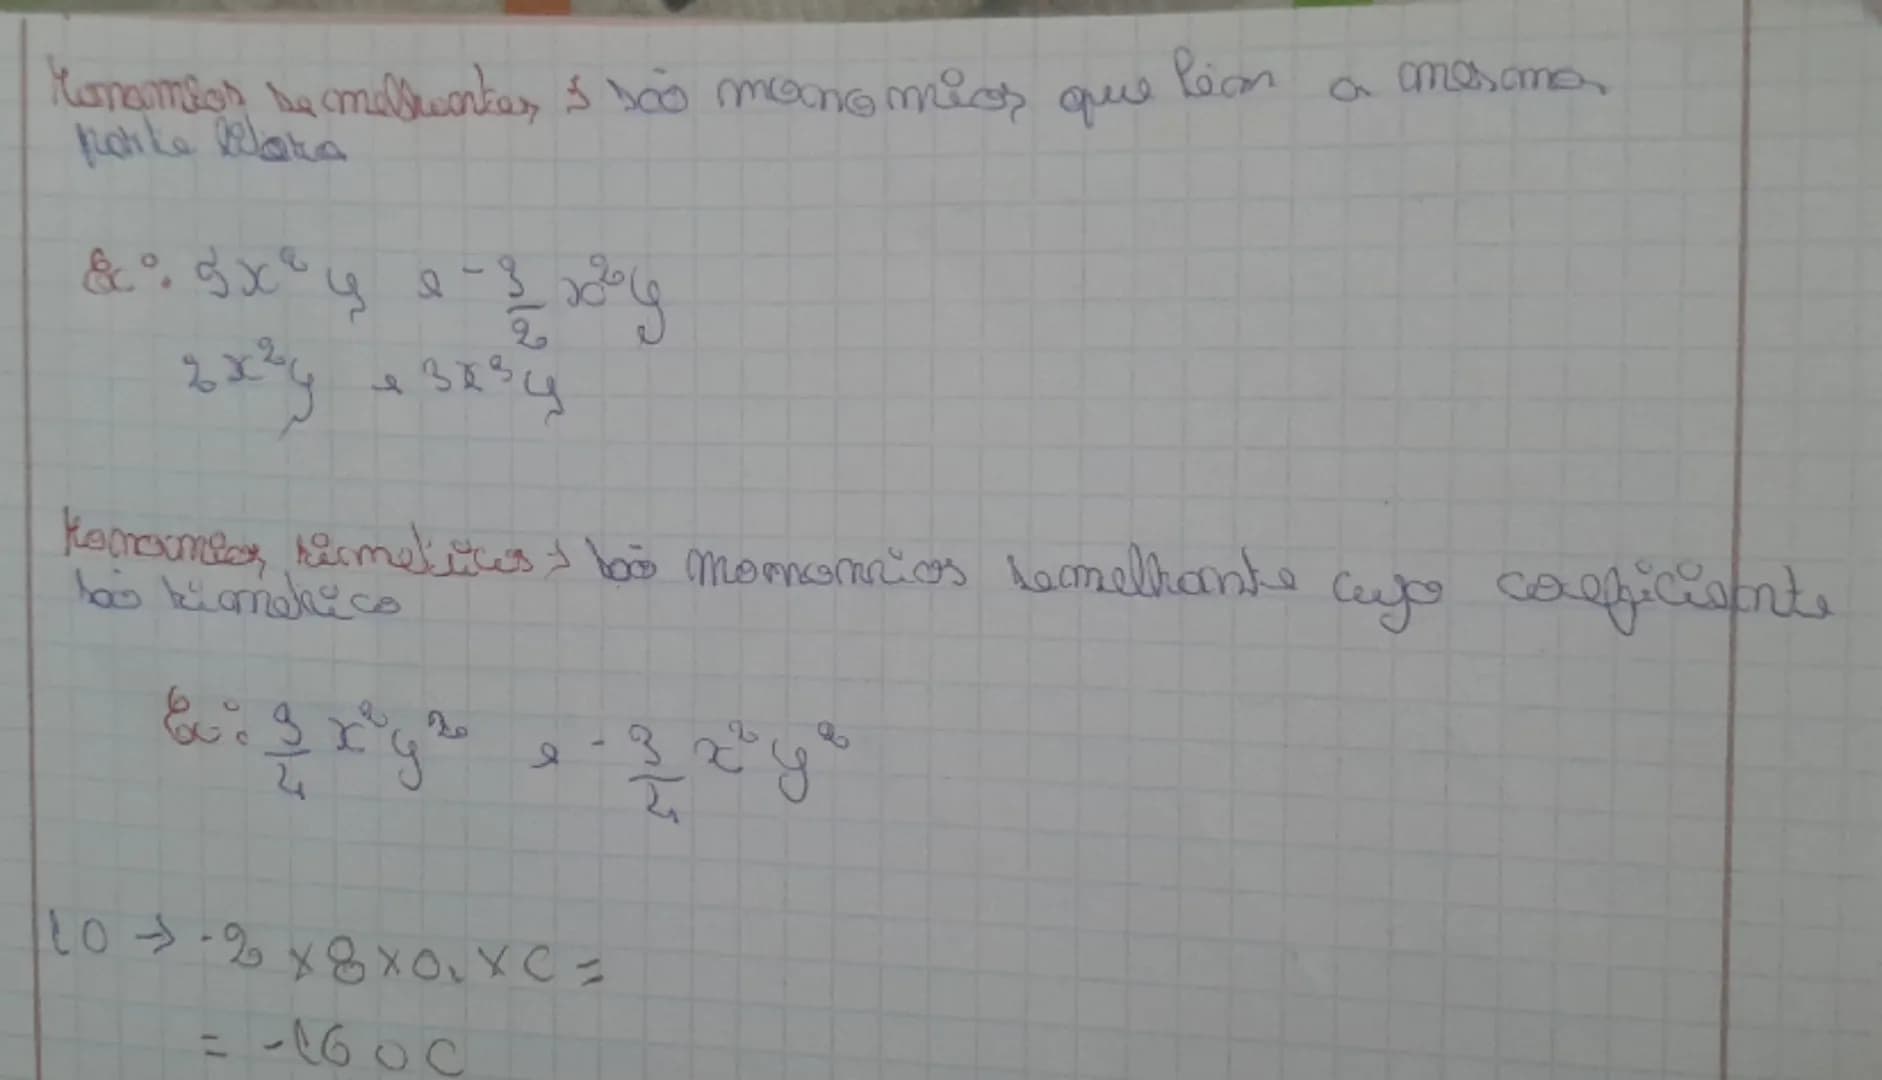 Monomios semelhantes → são monomios que têm a mesma
parte litera
Ex: 5x² y e -3/2 x²y
2x²y e 3x³y
Monomios simetricos → são monomios semelhante cujo coeficiente
são simetrico
Ex: 3/4 x²y² e -3/4 x²y²
10 → -2 × 8 × a × c =
= -16 a c